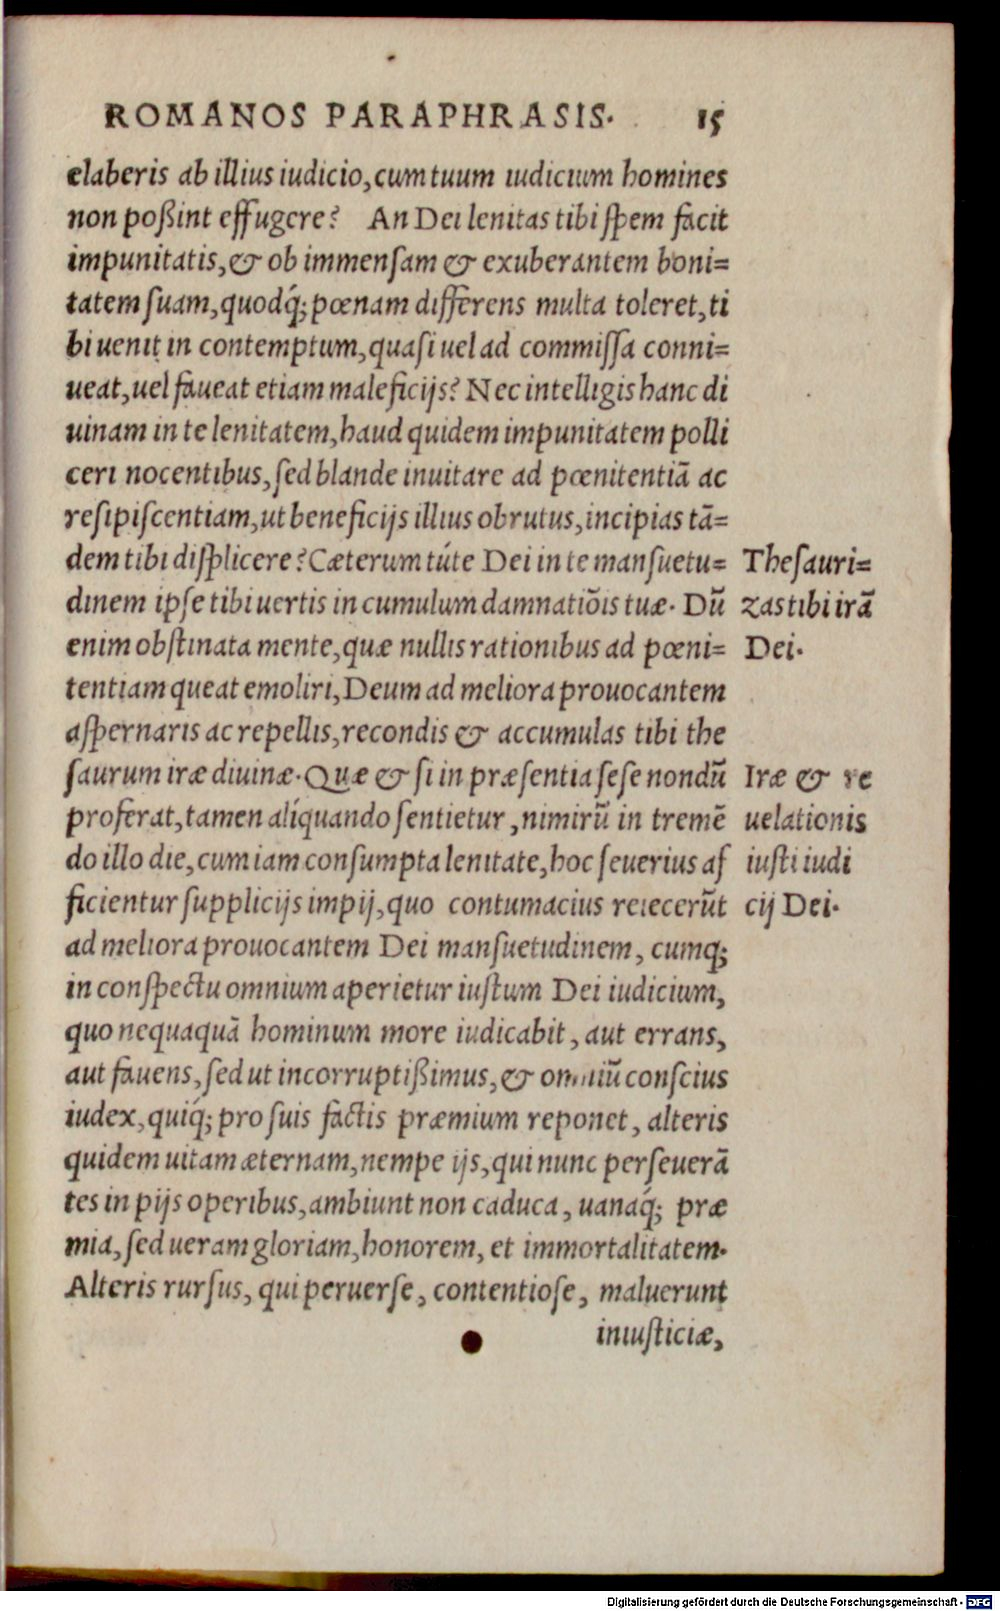 ROMANOS PARAPHRASIS. 15
elaberis ab illius iudicio, cum tuum iudicium homines
non poßint effugere? An Dei lenitas tibi spem facit
impunitatis, & ob immensam & exuberantem boni=
tatem suam, quodq́; pœnam differens multa toleret, ti
bi uenit in contemptum, quasi uel ad commissa conni=
ueat, uel faueat etiam maleficijs? Nec intelligis hanc di
uinam in te lenitatem, haud quidem impunitatem polli
ceri nocentibus, sed blande inuitare ad pœnitentiã ac
resipiscentiam, ut beneficijs illius obrutus, incipias tã=
dem tibi displicere? Cæterum túte Dei in te mansuetu=
dinem ipse tibi uertis in cumulum damnatiõis tuæ. Dũ
enim obstinata mente, quæ nullis rationibus ad pœni=
tentiam queat emoliri, Deum ad meliora prouocantem
aspernaris ac repellis, recondis & accumulas tibi the
saurum iræ diuinæ. Quæ & si in præsentia sese nondũ
proferat, tamen alíquando sentietur, nimirũ in tremẽ
do illo die, cum iam consumpta lenitate, hoc seuerius af
ficientur supplicijs impij, quo contumacius reiecerũt
ad meliora prouocantem Dei mansuetudinem, cumq;
in conspectu omnium aperietur iustum Dei iudicium,
quo nequaquã hominum more iudicabit, aut errans,
aut fauens, sed ut incorruptißimus, & omniũ conscius
iudex, quiq́; pro suis factis præmium reponet, alteris
quidem uitam æternam, nempe ijs, qui nunc perseuerã
tes in pijs operibus, ambiunt non caduca, uanaq́; præ
mia, sed ueram gloriam, honorem, et immortalitatem.
Alteris rursus, qui peruerse, contentiose, maluerunt
iniusticiæ,
Thesauri=
zas tibi irã
Dei.
Iræ & re
uelationis
iusti iudi
cij Dei.
Digitalisierung gefördert durch die Deutsche Forschungsgemeinschaft - DFG